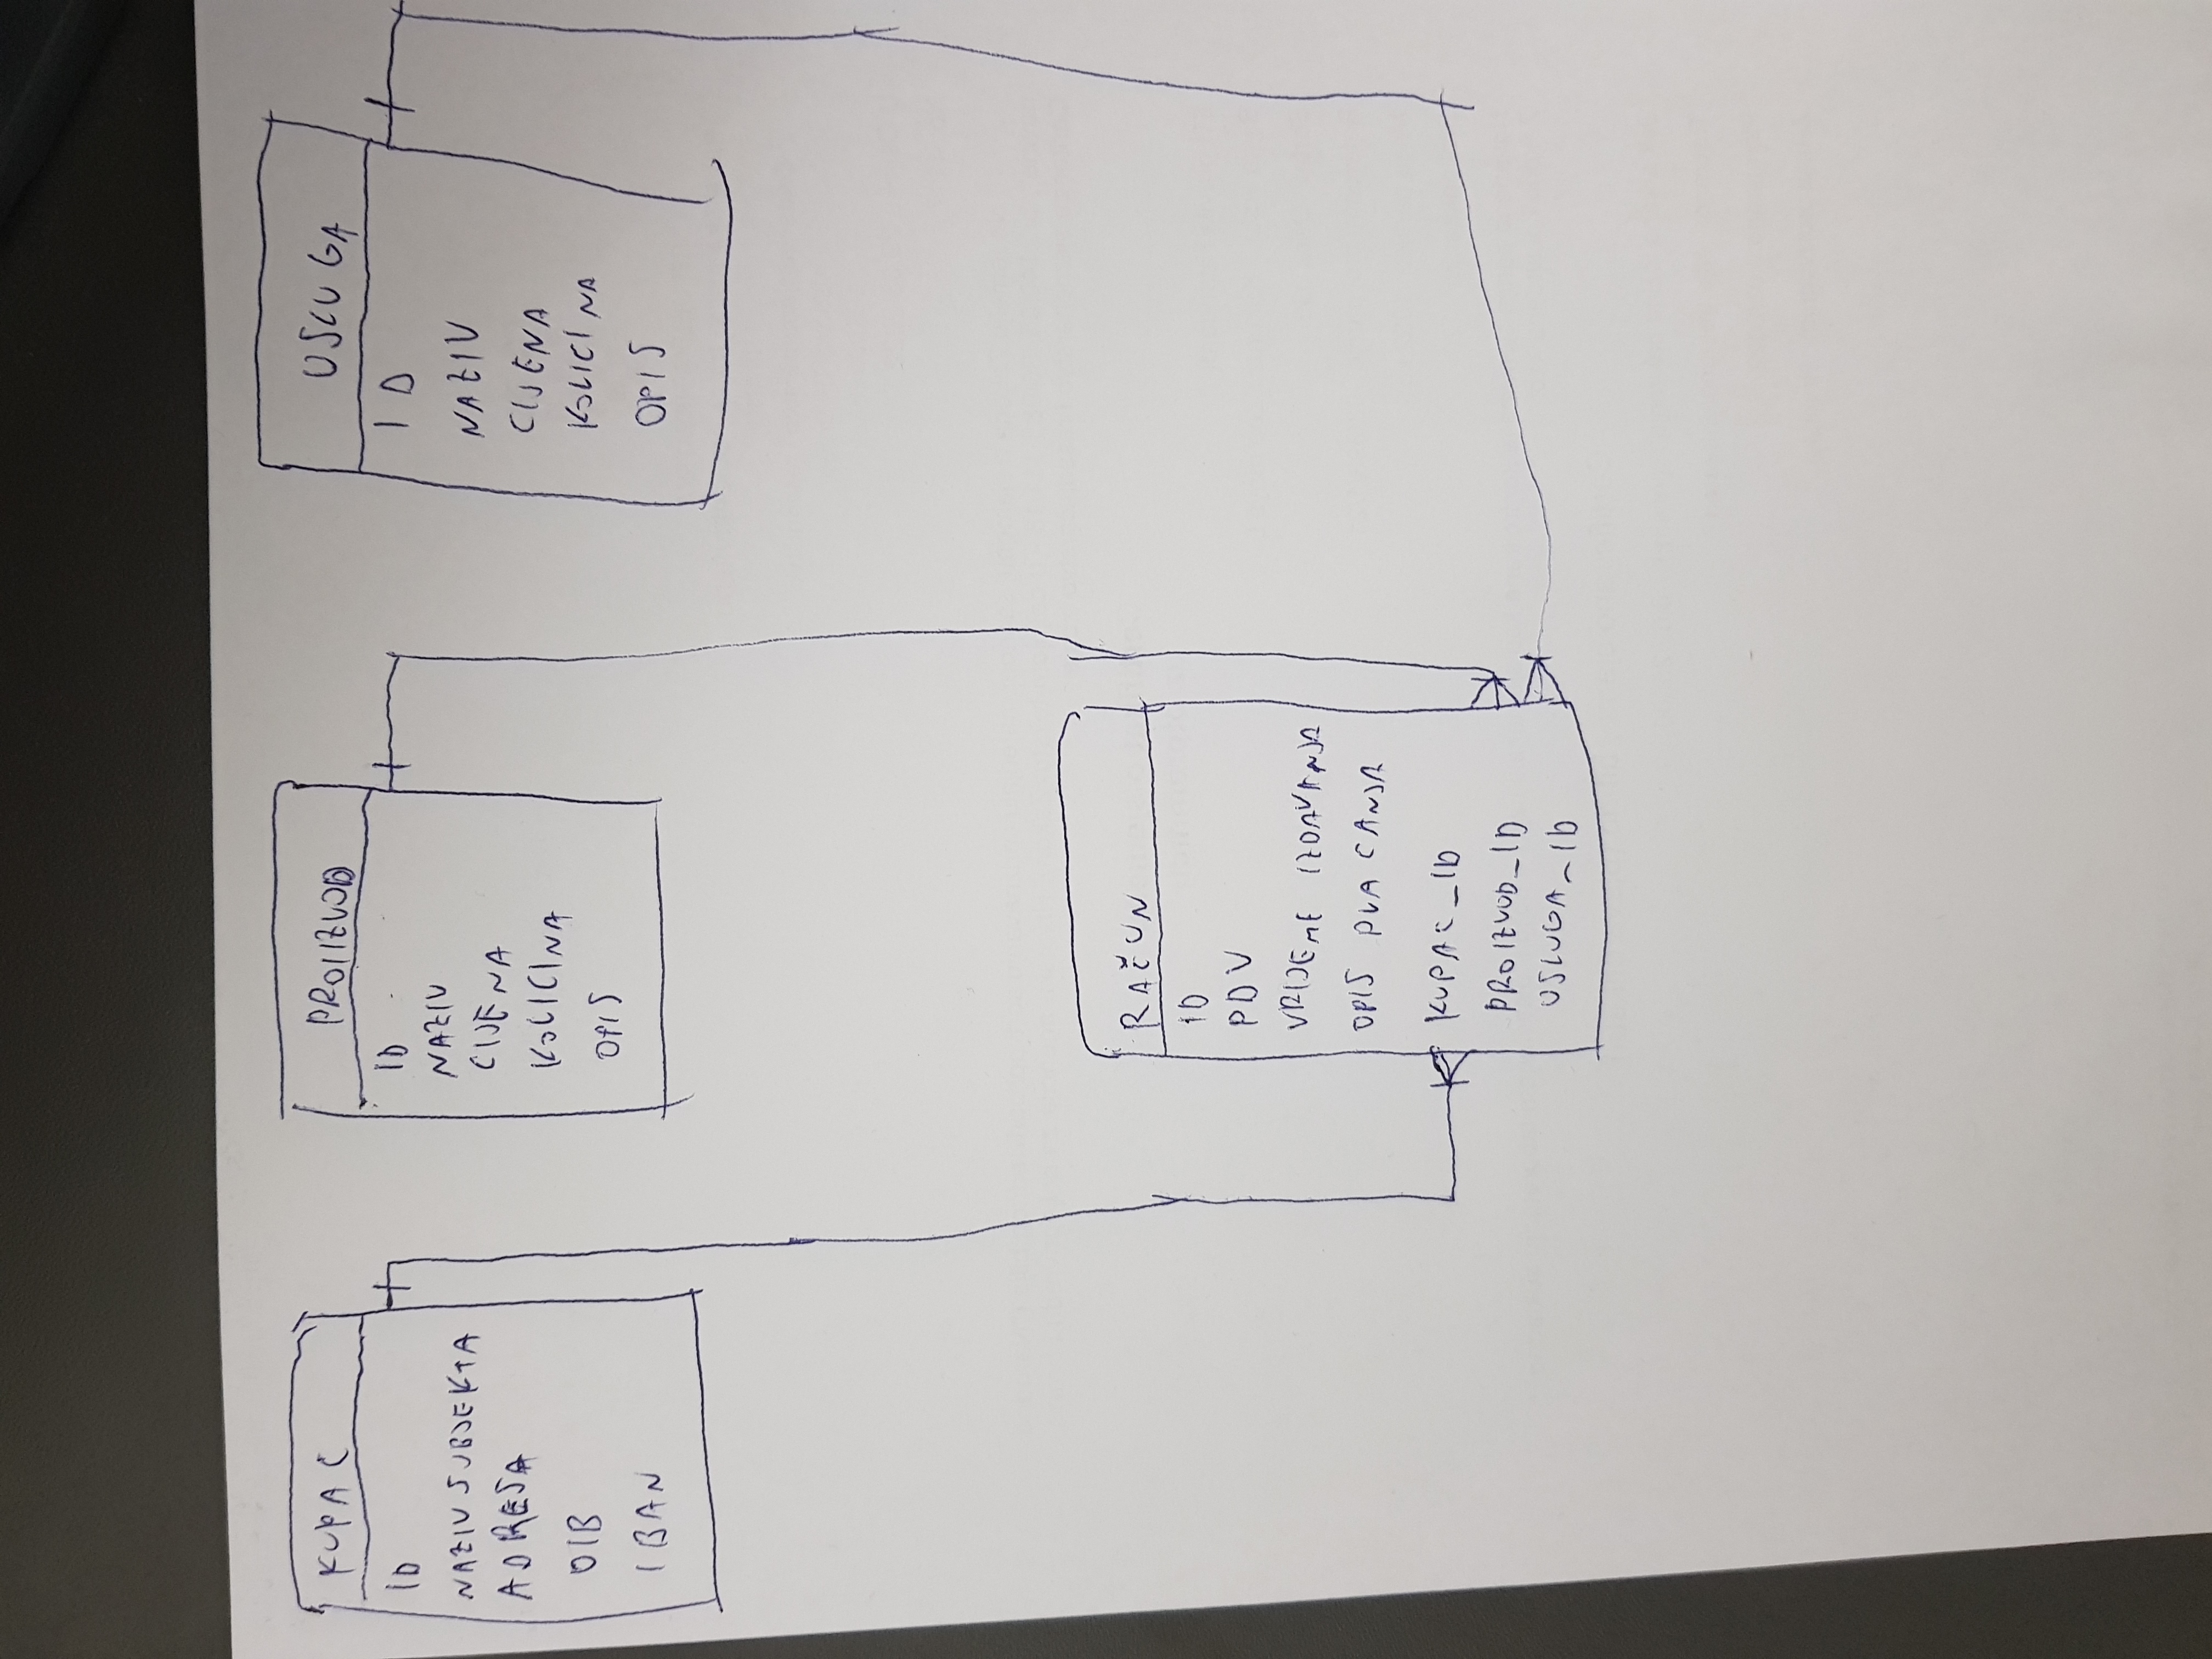 KUPAC
ID
NAZIV SUBJEKTA
ADRESA
OIB
IBAN
PROIZVOD
ID
NAZIV
CIJENA
KOLICINA
OPIS
USLUGA
ID
NAZIV
CIJENA
KOLICINA
OPIS
RAČUN
ID
PDV
VRIJEME IZDAVANJA
OPIS PLACANJA
KUPAC_ID
PROIZVOD_ID
USLUGA_ID